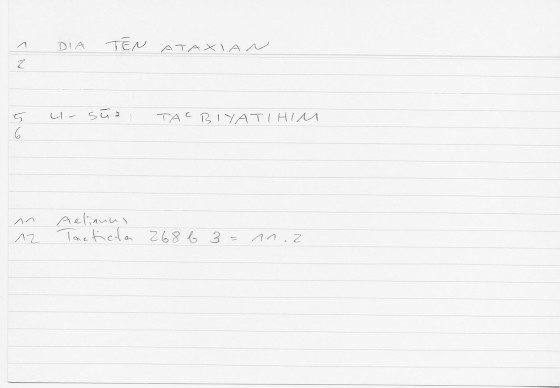 1 DIA TĒN ATAXIAN
2
5 LI- SŪʾ TAʿBIYATIHIM
6
11 Aelianus
12 Tactica 268 b 3 = 11.2